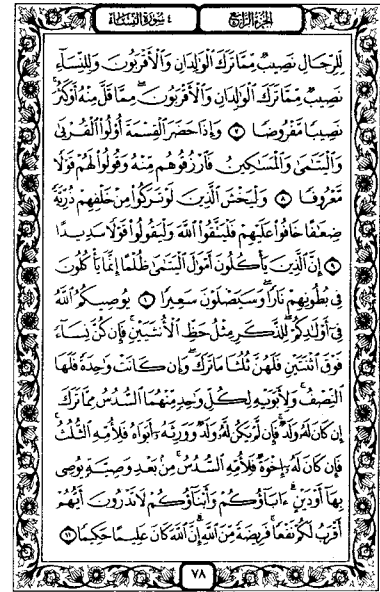 الجزء الرابع
٤ سورة النساء
لِّلرِّجَالِ نَصِيبٌ مِّمَّا تَرَكَ الْوَالِدَانِ وَالْأَقْرَبُونَ وَلِلنِّسَاءِ
نَصِيبٌ مِّمَّا تَرَكَ الْوَالِدَانِ وَالْأَقْرَبُونَ مِمَّا قَلَّ مِنْهُ أَوْ كَثُرَ
نَصِيبًا مَّفْرُوضًا ٧ وَإِذَا حَضَرَ الْقِسْمَةَ أُوْلُوا الْقُرْبَى
وَالْيَتَامَى وَالْمَسَاكِينُ فَارْزُقُوهُم مِّنْهُ وَقُولُوا لَهُمْ قَوْلًا
مَّعْرُوفًا ٨ وَلْيَخْشَ الَّذِينَ لَوْ تَرَكُوا مِنْ خَلْفِهِمْ ذُرِّيَّةً
ضِعَافًا خَافُوا عَلَيْهِمْ فَلْيَتَّقُوا اللَّهَ وَلْيَقُولُوا قَوْلًا سَدِيدًا
٩ إِنَّ الَّذِينَ يَأْكُلُونَ أَمْوَالَ الْيَتَامَى ظُلْمًا إِنَّمَا يَأْكُلُونَ
فِي بُطُونِهِمْ نَارًا وَسَيَصْلَوْنَ سَعِيرًا ١٠ يُوصِيكُمُ اللَّهُ
فِي أَوْلَادِكُمْ لِلذَّكَرِ مِثْلُ حَظِّ الْأُنثَيَيْنِ فَإِن كُنَّ نِسَاءً
فَوْقَ اثْنَتَيْنِ فَلَهُنَّ ثُلُثَا مَا تَرَكَ وَإِن كَانَتْ وَاحِدَةً فَلَهَا
النِّصْفُ وَلِأَبَوَيْهِ لِكُلِّ وَاحِدٍ مِّنْهُمَا السُّدُسُ مِمَّا تَرَكَ
إِن كَانَ لَهُ وَلَدٌ فَإِن لَّمْ يَكُن لَّهُ وَلَدٌ وَوَرِثَهُ أَبَوَاهُ فَلِأُمِّهِ الثُّلُثُ
فَإِن كَانَ لَهُ إِخْوَةٌ فَلِأُمِّهِ السُّدُسُ مِن بَعْدِ وَصِيَّةٍ يُوصِي
بِهَا أَوْ دَيْنٍ ءَابَاؤُكُمْ وَأَبْنَاؤُكُمْ لَا تَدْرُونَ أَيُّهُمْ
أَقْرَبُ لَكُمْ نَفْعًا فَرِيضَةً مِّنَ اللَّهِ إِنَّ اللَّهَ كَانَ عَلِيمًا حَكِيمًا ١١
٧٨